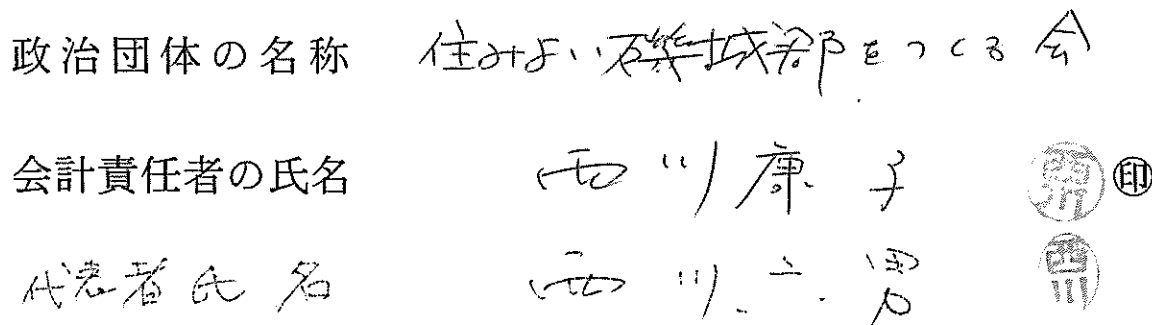 政治団体の名称 住みよい磯城郡をつくる会
会計責任者の氏名 西川康子 西川 印
代表者氏名 西川六男 西川